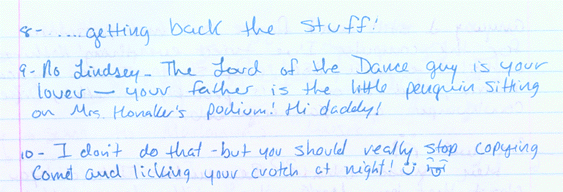 8- .....getting back the stuff!
9- No Lindsey - The Lord of the Dance guy is your
lover — your father is the little penguin sitting
on Mrs. Honaker's podium! Hi daddy!
10- I don't do that - but you should really stop copying
Comet and licking your crotch at night!